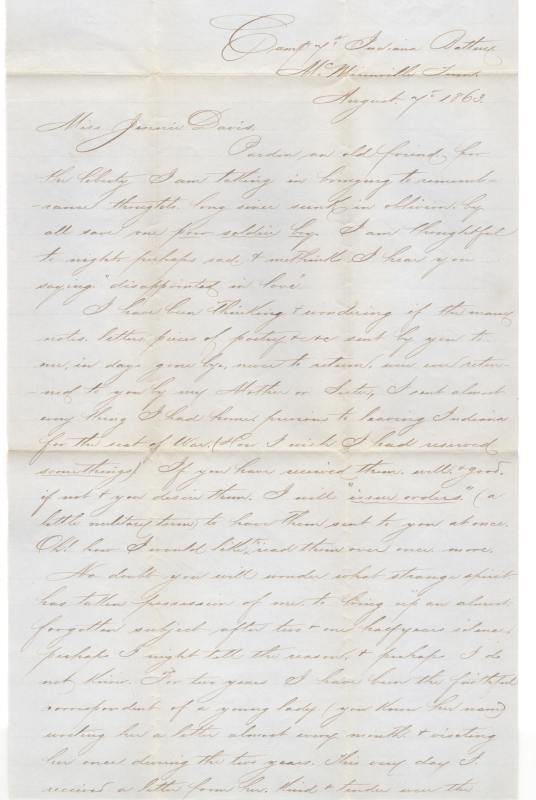 Camp 7th Indiana Battery
McMinnville Tenn.
August. 7th 1863.
Miss Jennie Davis.
Pardon an old friend for
the liberty I am taking in bringing to rememb-
-rance thoughts long since sunk in oblivion by
all save one poor soldier boy. I am thoughtful
to night, perhaps sad, & methinks I hear you
saying "disappointed in love".
I have been thinking & wondering if the many
notes. letters, pieces of poetry &c &c sent by you to
me, in days gone by, never to return, were ever retur-
-ned to you by my Mother or Sister, I sent almost
every thing I had home, previous to leaving Indiana
for the seat of War. (How I wish I had reserved
somethings)" If you have received them. well & good,
if not & you desire them. I will "issue orders." (a
little military term) to have them sent to you at once.
Oh! how I would like to read them over once more.
No doubt you will wonder what strange spirit
has taken possession of me, to bring up an almost
forgotten subject after two & one half years silence,
perhaps I might tell the reason, & perhaps I do
not know. For two years I have been the faithful
correspondent of a young lady (you know her name)
writing her a letter almost every month & visiting
her once during the two years. This very day I.
received a letter from her. kind & tender were the